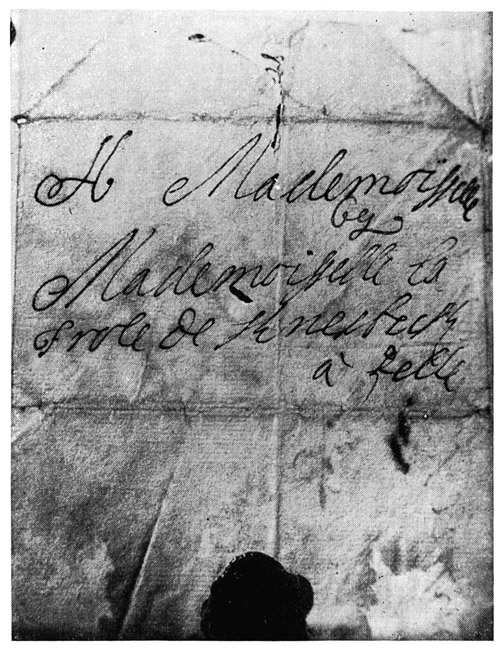 A Mademoiselle
Mademoiselle la
Frole de Knesbeck
à Zelle